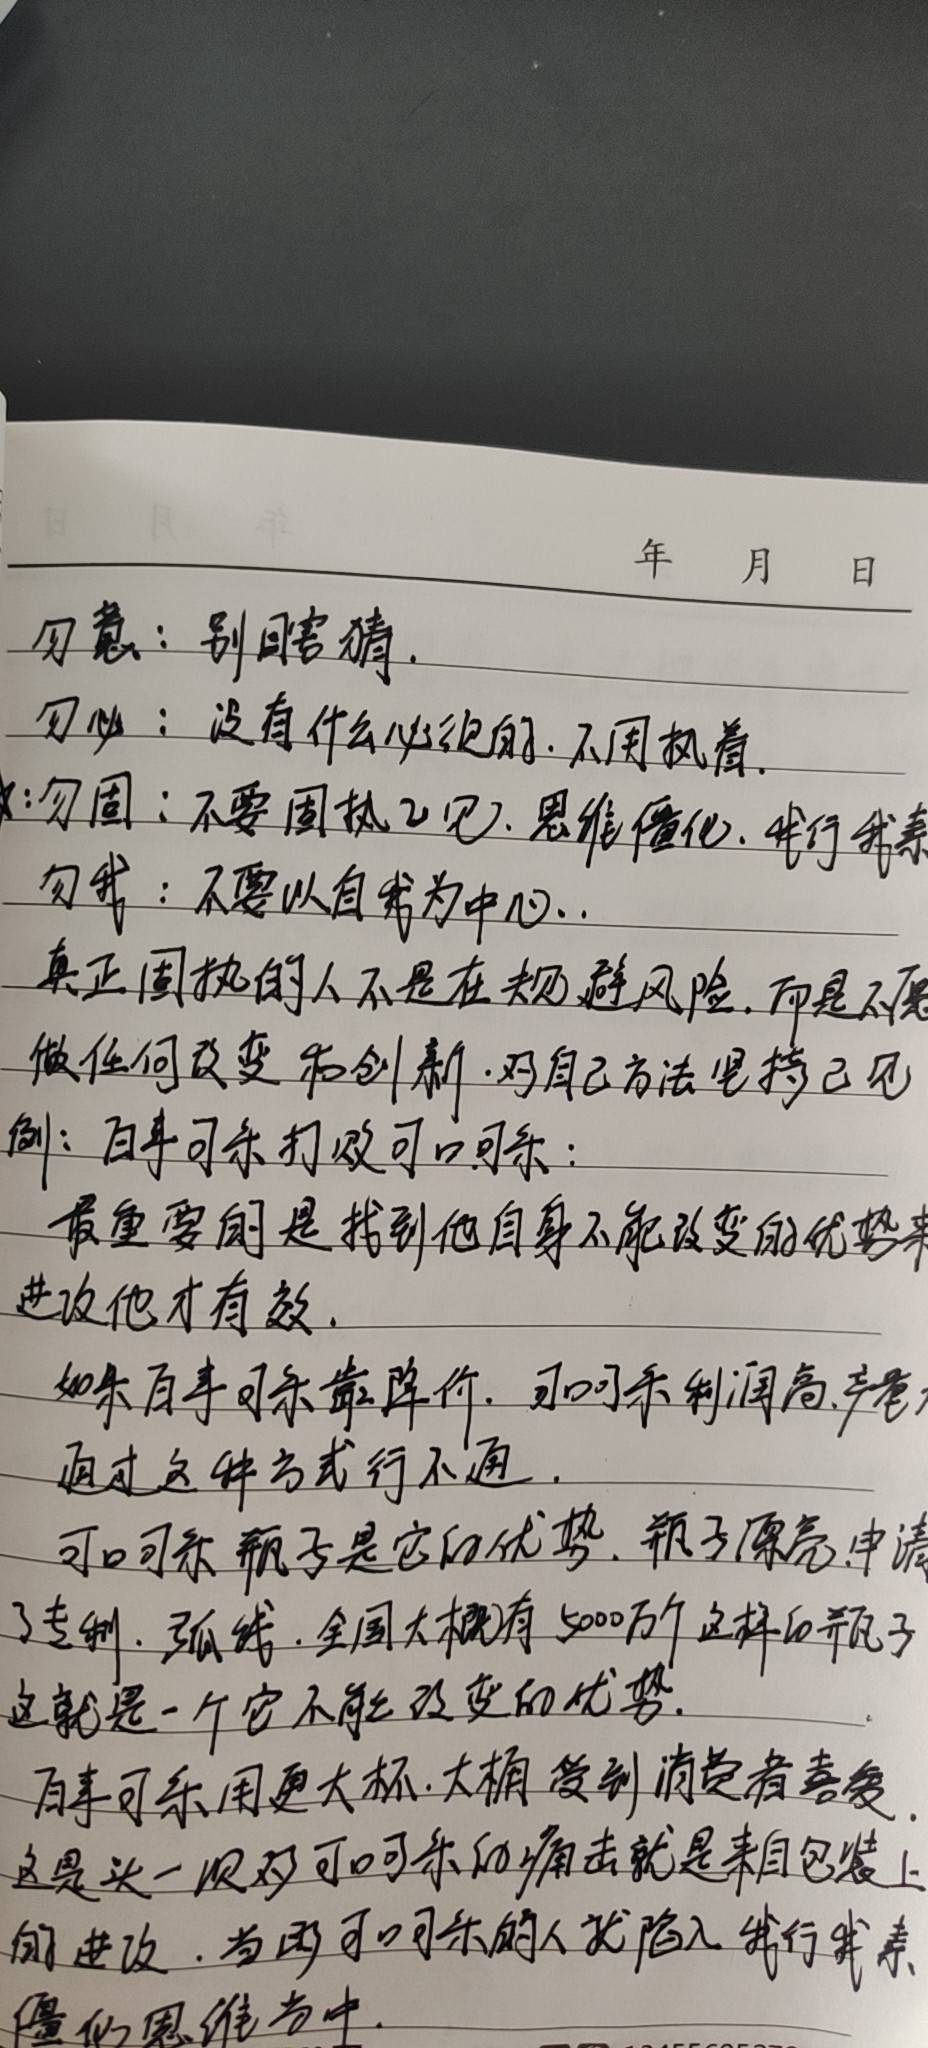 年 月 日
勿意：别瞎猜.
勿必：没有什么必须的.不用执着.
：勿固：不要固执己见、思维僵化.我行我素
勿我：不要以自我为中心..
真正固执的人不是在规避风险.而是不愿
做任何改变和创新.对自己方法坚持己见
例：百事可乐打败可口可乐：
最重要的是找到他自身不能改变的优势来
进攻他才有效.
如果百事可乐靠降价.可口可乐利润高.产量大
通过这种方式行不通.
可口可乐瓶子是它的优势.瓶子漂亮.申请
了专利.弧线.全国大概有5000万个这样的瓶子
这就是一个它不能改变的优势.
百事可乐用更大杯.大桶受到消费者喜爱.
这是头一次对可口可乐的痛击就是来自包装上
的进攻.当时可口可乐的人就陷入我行我素
僵化思维当中.